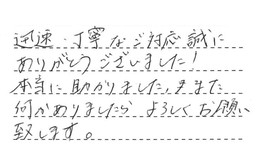 迅速・丁寧なご対応誠に
ありがとうございました!
本当に助かりました。またまた
何かありましたら よろしくお願い
致します。